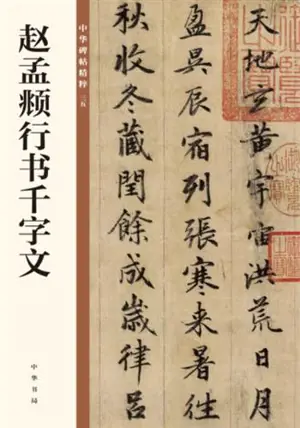 赵孟頫行书千字文
中华碑帖精粹
中华书局
天地玄黄宇宙洪荒日月
盈昃辰宿列張寒来暑往
秋收冬藏閏餘成歲律呂